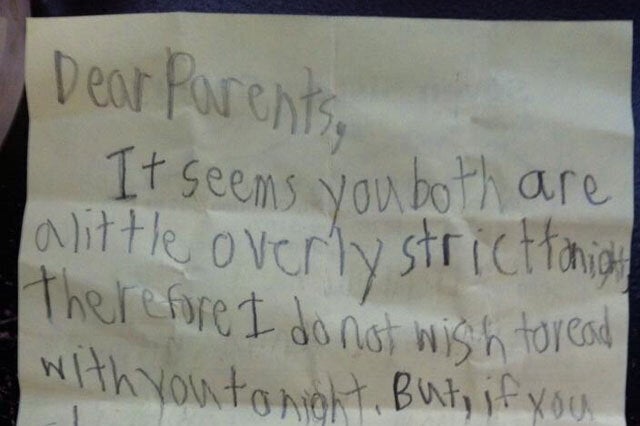 Dear Parents,
It seems you both are
a little overly strict tonight,
therefore I do not wish to read
with you tonight. But, if you